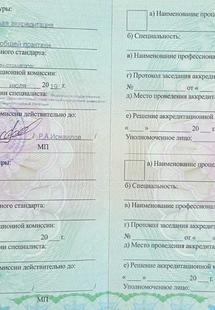 уры:
ая аккредитация
общей практики
ьного стандарта:
ационной комиссии:
июля 2019 г.
ии специалиста:
миссии действительно до:
Р.А.Исмаилов
МП
ры:
тандарта:
ционной комиссии:
20 г.
ии специалиста:
миссии действительно до:
20 г.
МП
а) Наименование процед
б) Специальность:
в) Наименование професси
г) Протокол заседания аккр
№ от « »
д) Место проведения аккредит
е) Решение аккредитационной
« » 20
Уполномоченное лицо:
а) Наименование проце
б) Специальность:
в) Наименование професси
г) Протокол заседания аккред
№ от « »
д) Место проведения аккредит
е) Решение аккредитационной к
« » 20
Уполномоченное лицо: